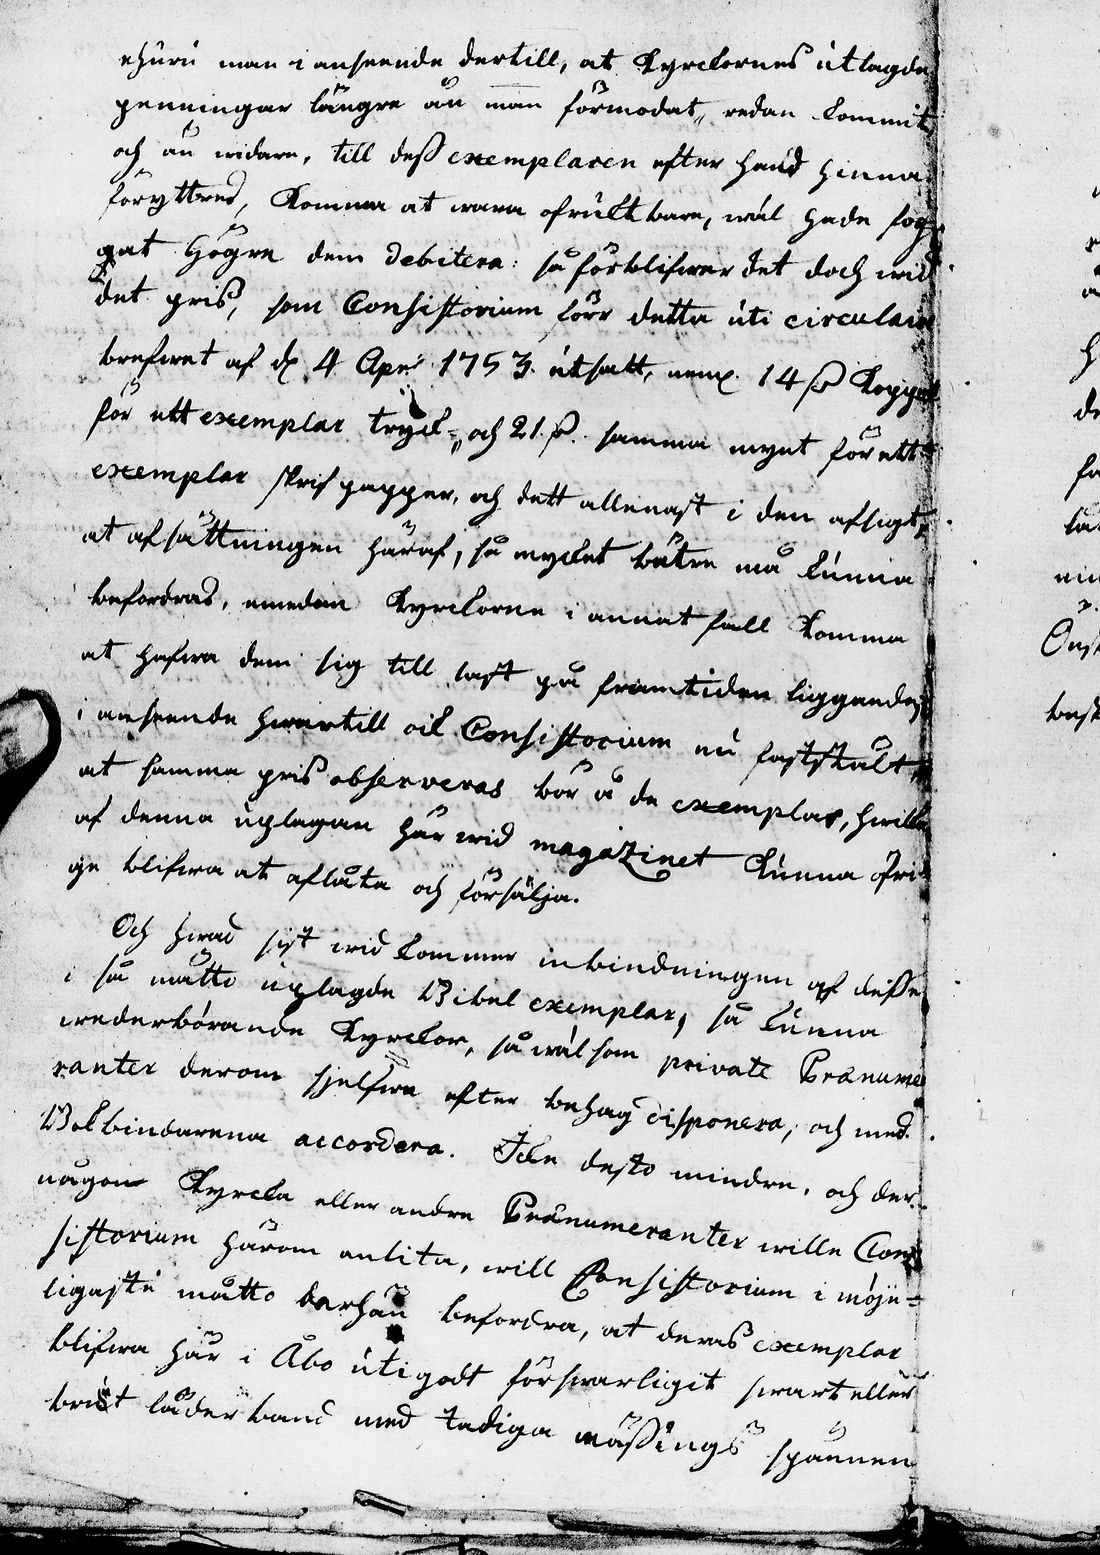 ehuru man i anseende dertill, at Kyrckornes utlagde
penningar längre än man förmodat, redan kommit
och än widare, till dess exemplaren efter hand hinna
föryttras, komma at wara ofrucktbare, wäl hade fog-
gat högre dem debitera: så förblifwer det doch wid
det pris, som Consistorium förr detta uti circulair
brefwet af d. 4 Apr: 1753. utsatt, neml. 14 ß Koppar
för ett exemplar tryck- och 21. ß. samma mynt för ett
exemplar skrif papper, och dett allenast i den afsigt,
at afsättningen häraf, så mycket bätre må kunna
befordras, emedan Kyrckorne i annat fall komma
at hafwa dem sig till last på framtiden liggande,
i anseende hwartill ock Consistorium nu fastställt,
at samma pris observeras bör å de exemplar, hwilka
af denna uplagan här wid magazinet kunna öfri-
ge blifwa at aflåta och försälja.
Och hwad sist wid kommer inbindningen af desse
i så måtto uplagde Bibel exemplar, så kunna
wederbörande Kyrckor, så wäl som private Pränume
ranter derom sjelfwe efter behag disponera, och med
Bokbindarena accordera. Icke desto mindre, och der
någon Kyrcka eller andre Pränumeranter wille Con
sistorium härom anlita, will Consistorium i möje-
ligaste måtto derhän befordra, at deras exemplar
blifwa här i Åbo uti godt förswarligit swart eller
brunt läder band med tadiga mässings spännen